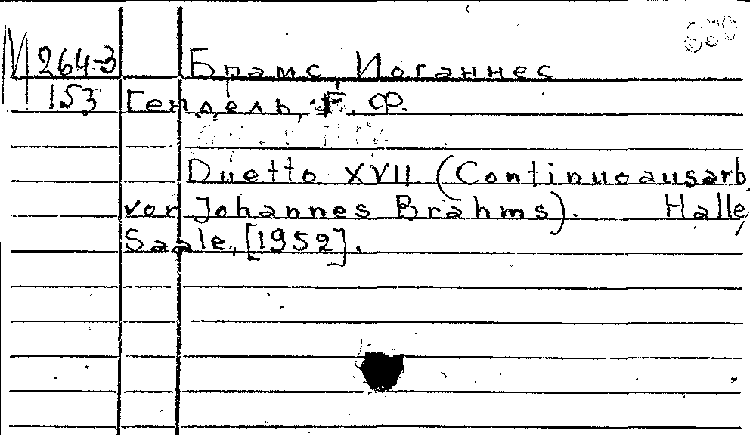 М 264-3 Брамс, Иоганнес
153 Гендель, Г. Ф.
Duetto XVII (Continuoausarb.
von Johannes Brahms). Halle,
Saale, [1952].